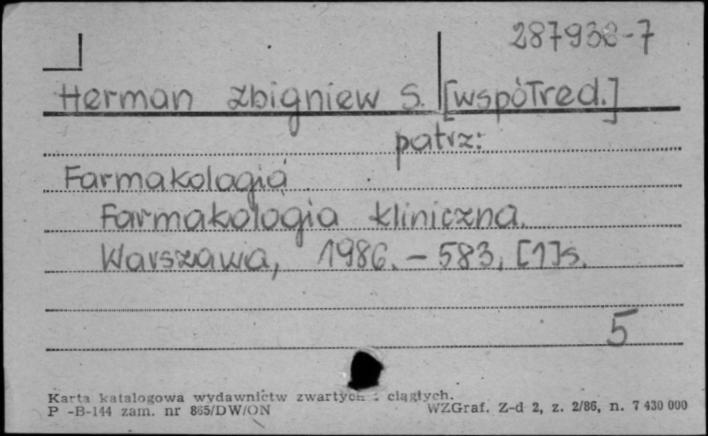 287938-7
Herman Zbigniew S. [współred.]
patrz:
Farmakologia
Farmakologia kliniczna.
Warszawa, 1986. - 583, [1]s.
5
Karta katalogowa wydawnictw zwartych i ciągłych.
P -B-144 zam. nr 865/DW/ON WZGraf. Z-d 2, z. 2/86, n. 7 430 000